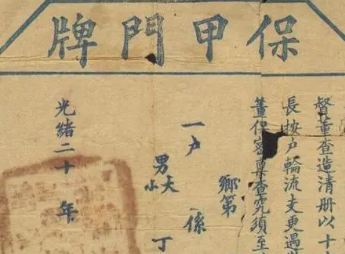 保甲門牌
督董查造清册以十
長按戶輪流支更遇
董保密稟查究須至
鄉第
一戶 係
男大小 丁
光緒二十 年